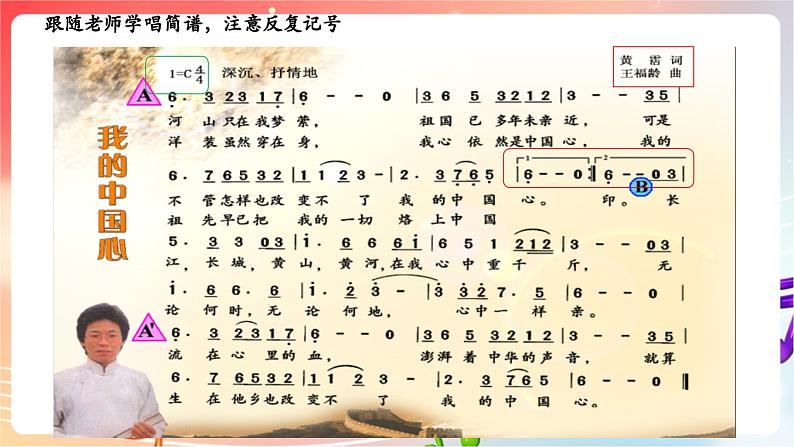 跟随老师学唱简谱，注意反复记号
1=C 4/4 深沉、抒情地
黄 霑 词
王福龄 曲
我的中国心
A
6. 3 23 1 7 | 6 - - 0 | 3 6 5 3212 | 3 - - 35 |
河 山只在我梦 萦， 祖国 已 多年未亲 近， 可是
洋 装虽然穿在 身， 我心 依 然是中国 心， 我的
6. 76532 | 1 123 - | 2. 3765 | 1 6 - - 0 :| 2 6 - - 03 |
B
不 管怎样也改 变不 了 我 的中国 心。 印。 长
祖 先早已把 我的 一切 烙 上中国
5. 3 3 03 | i. 6 6 6i | 6 5 1 212 | 3 - - 03 |
江，长城，黄山，黄河,在我 心中重千 斤， 无
i. 6 6. 03 | i. i 23 - | 3 32 7. 5 | 6 - - 0 |
论 何时,无 论 何地， 心中一 样 亲。
A'
6. 3 2317 | 6 - - 0 | 3 6 5 3212 | 3 - - 35 |
流 在心 里的血， 澎湃着 中华的声 音， 就算
6. 76532 | 1 123 - | 2. 3765 | 6 - - 0 ‖
生 在他乡也改 变不 了 我 的中国 心。